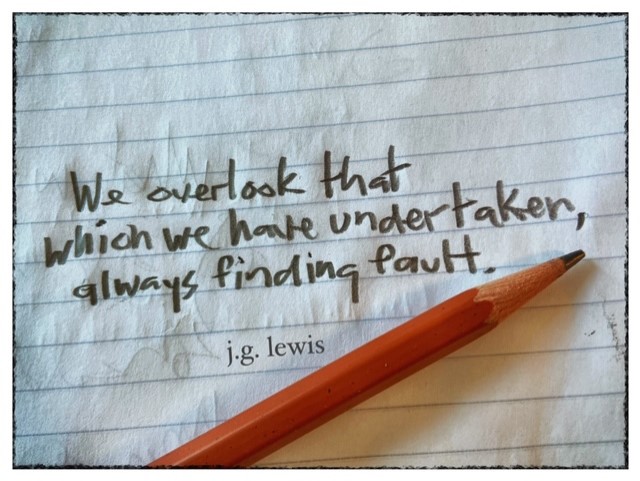 We overlook that
which we have undertaken,
always finding fault.
j.g. lewis